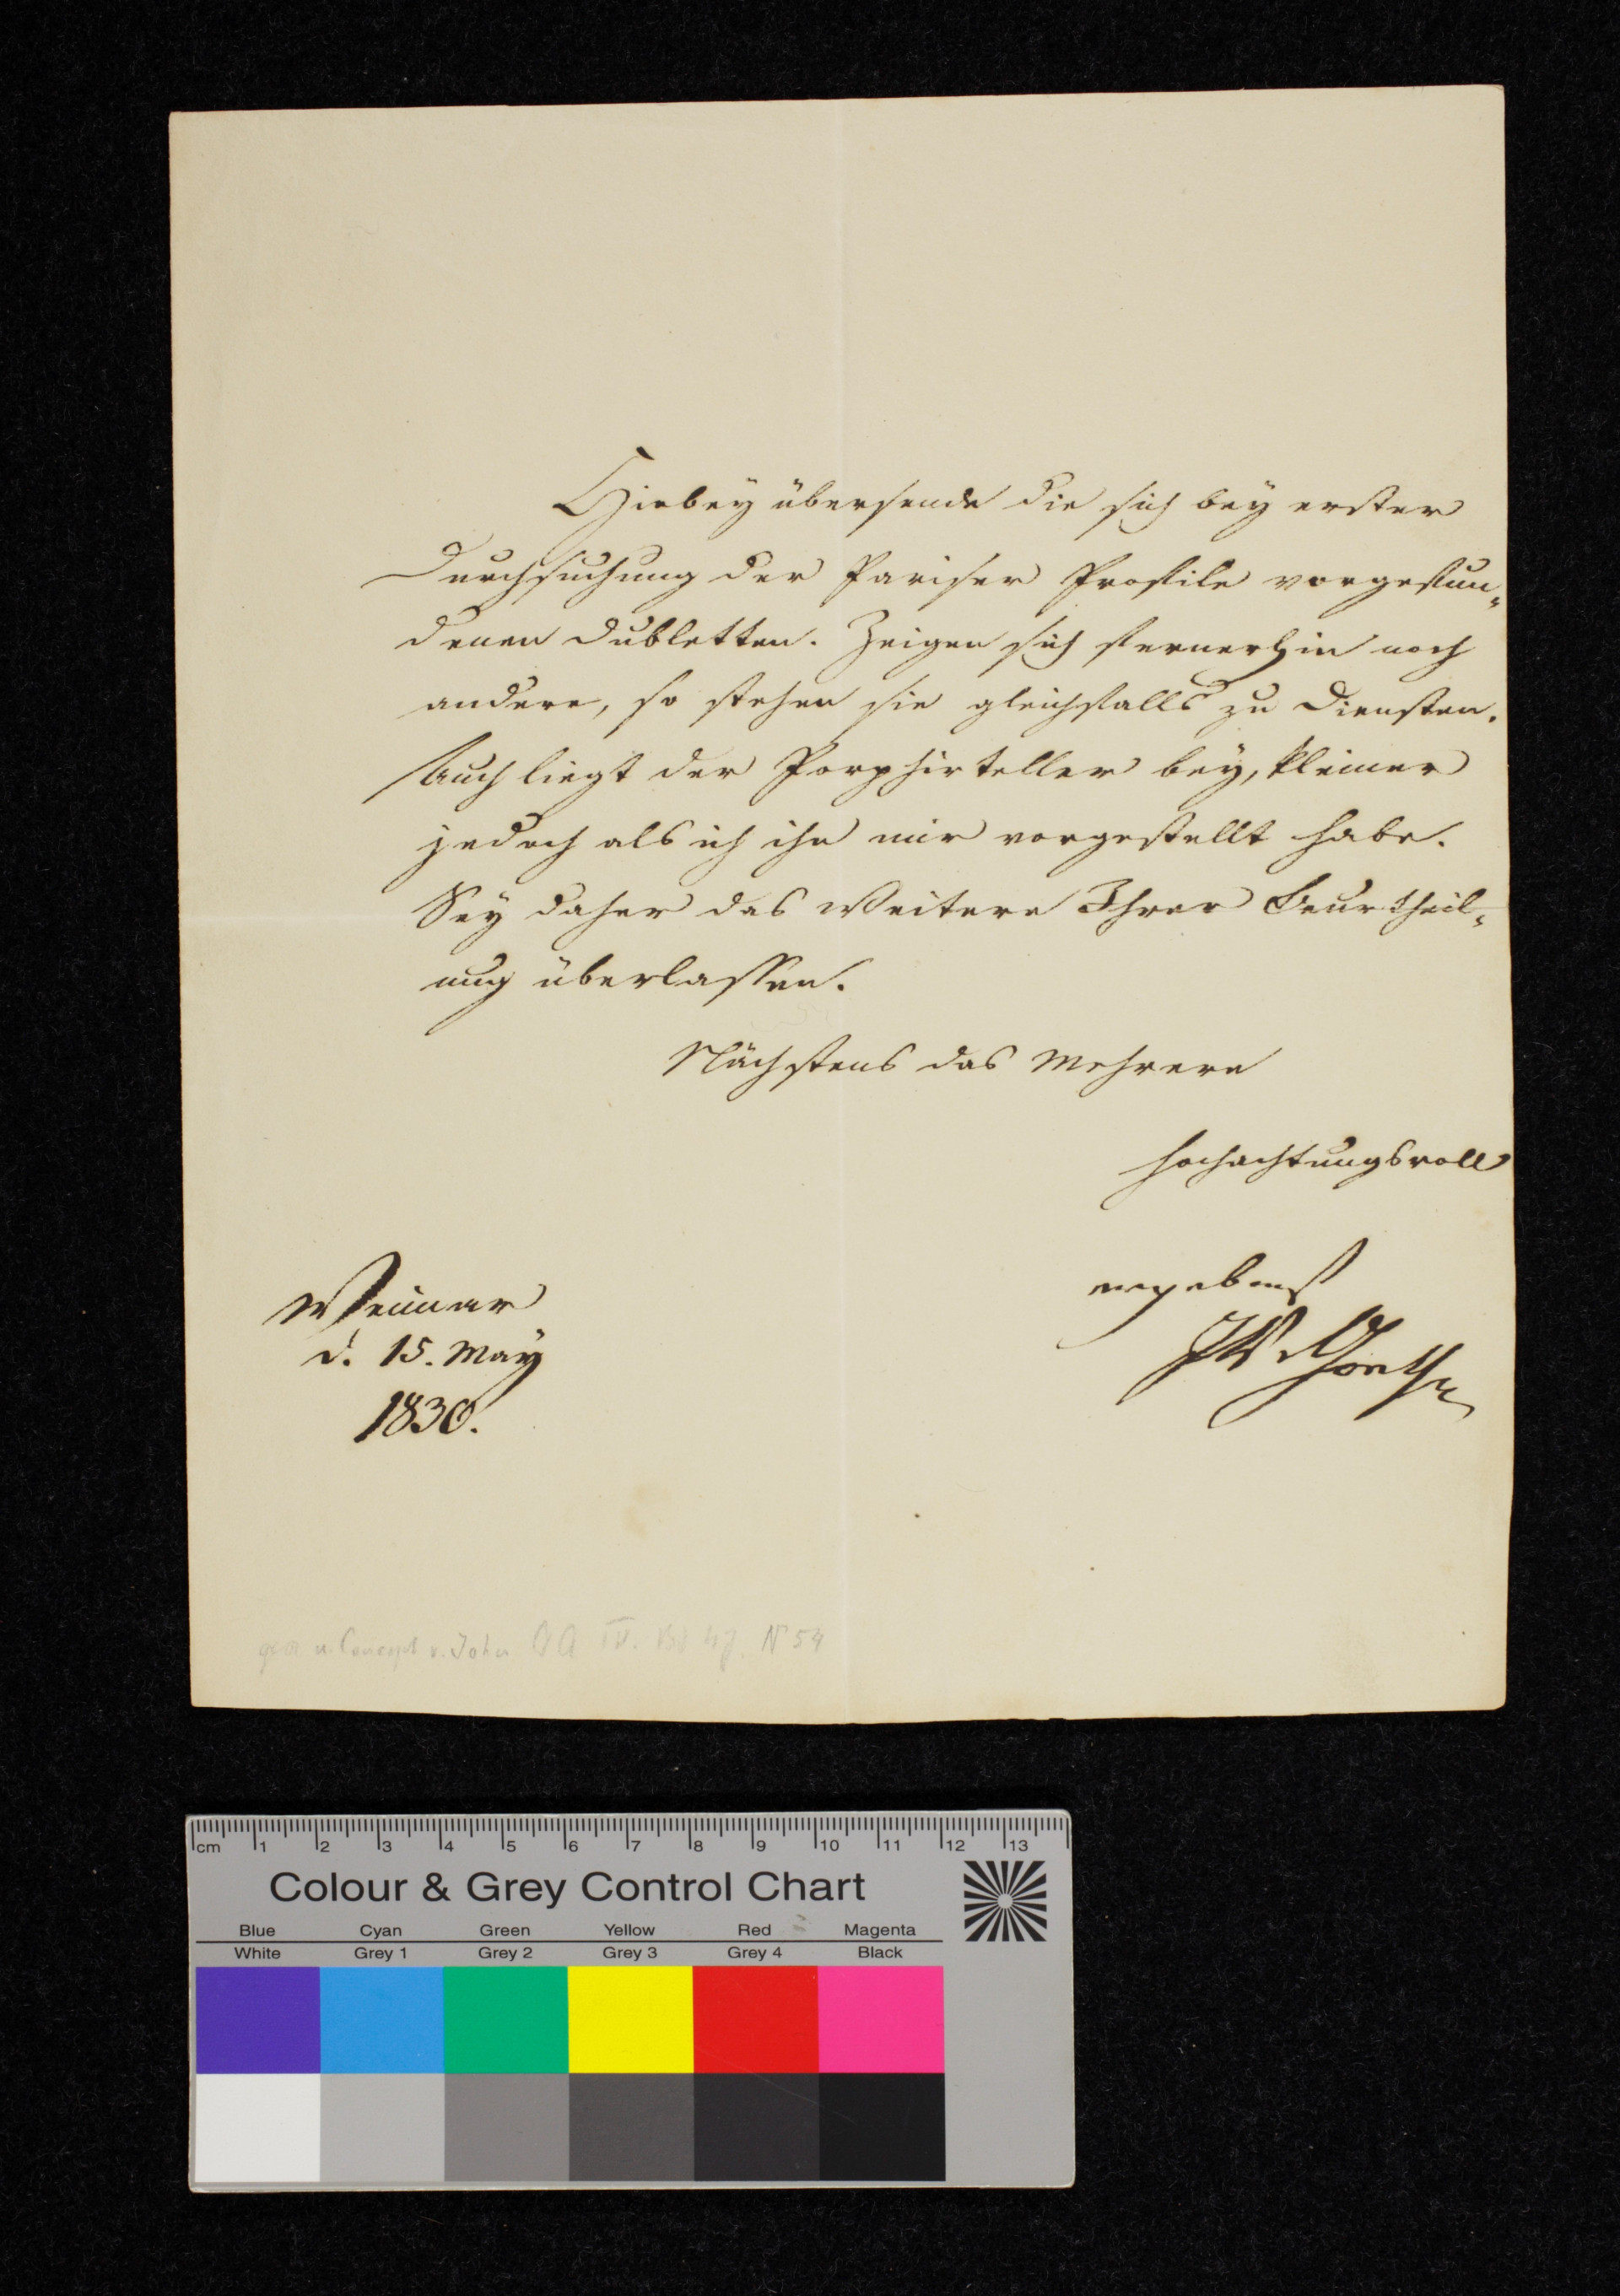 Hiebey übersende die sich bey erster
Durchsuchung der Pariser Profile vorgefun-
denen Dubletten. Zeigen sich fernerhin noch
andere, so stehen sie gleichfalls zu Diensten.
Auch liegt der Porphirteller bey, kleiner
jedoch als ich ihn mir vorgestellt habe.
Sey daher das Weitere Ihrer Beurtheil-
ung überlassen.
Nächstens das Mehrere
hochachtungsvoll
ergebenst
JWvGoethe
Weimar
d. 15. May
1830.
n. Concept v. John IV. Bd 47. N 54
cm 1 2 3 4 5 6 7 8 9 10 11 12 13
Colour & Grey Control Chart
Blue Cyan Green Yellow Red Magenta
White Grey 1 Grey 2 Grey 3 Grey 4 Black